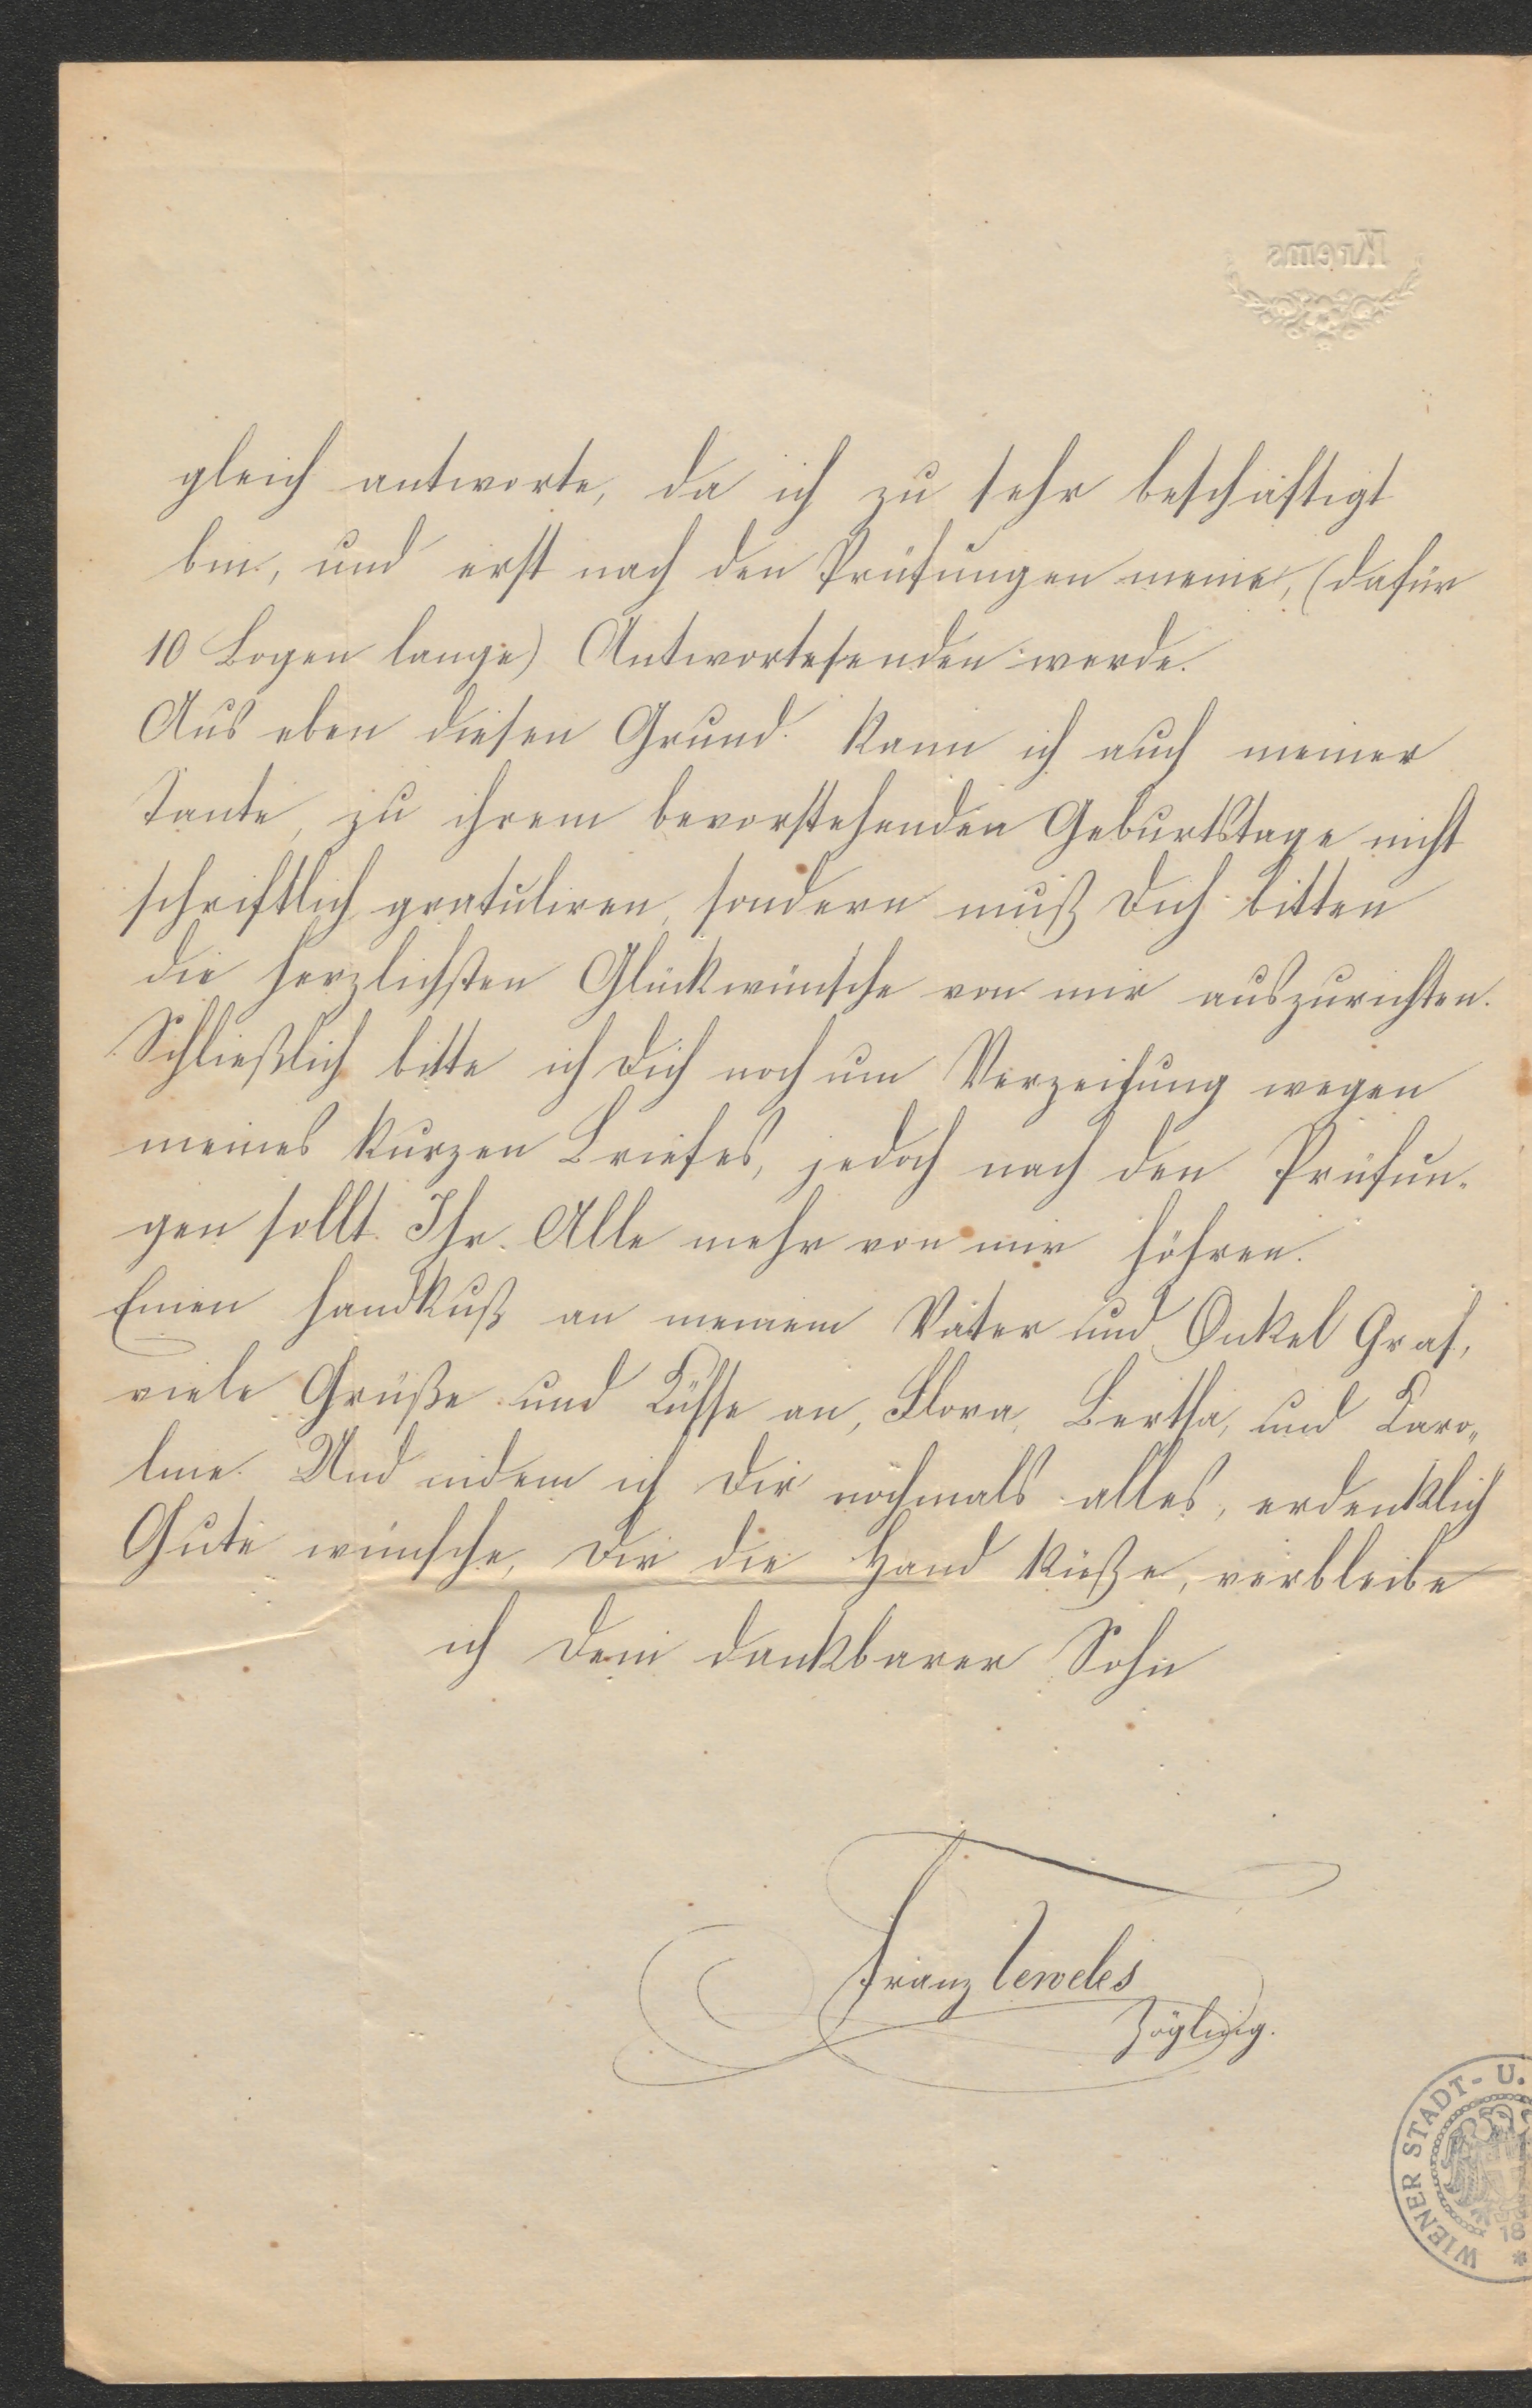 Krems
gleich antworte, da ich zu sehr beschäftigt
bin, und erst nach den Prüfungen meine, (dafür
10 Bogen lange) Antwortesenden werde.
Aus eben diesen Grund. kann ich auch meiner
Tante, zu ihrem bevorstehenden Geburtstage nicht
schriftlich gratuliren, sondern muß Dich bitten
die herzlichsten Glückwünsche von mir auszurichten.
Schließlich bitte ich Dich noch um Verzeihung wegen
meines kurzen Briefes, jedoch nach den Prüfun-
gen sollt Ihr Alle mehr von mir höhren.
Einen Handkuß an meinem Vater und Onkel Graf,
viele Grüße und Küsse an, Flora, Bertha, und Karo„
line. Und indem ich Dir nochmals alles, erdenklich
Gute wünsche, Dir die Hand küße, verbleibe
ich Dein dankbarer Sohn
Franz Teweles
Zögling.
WIENER STADT- U.
18